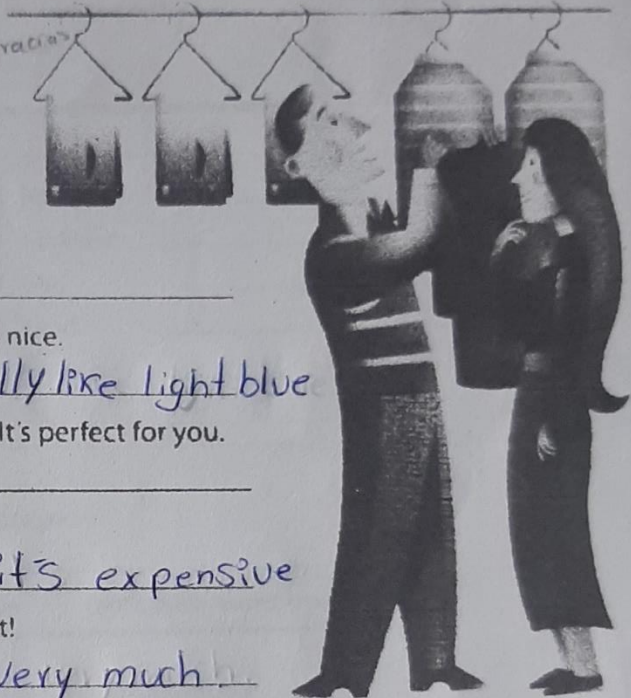 racias
nice.
lly like light blue
It's perfect for you.
it's expensive
t!
very much